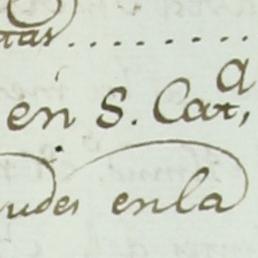 tas..........
en S. Cat.ª,
udes en la